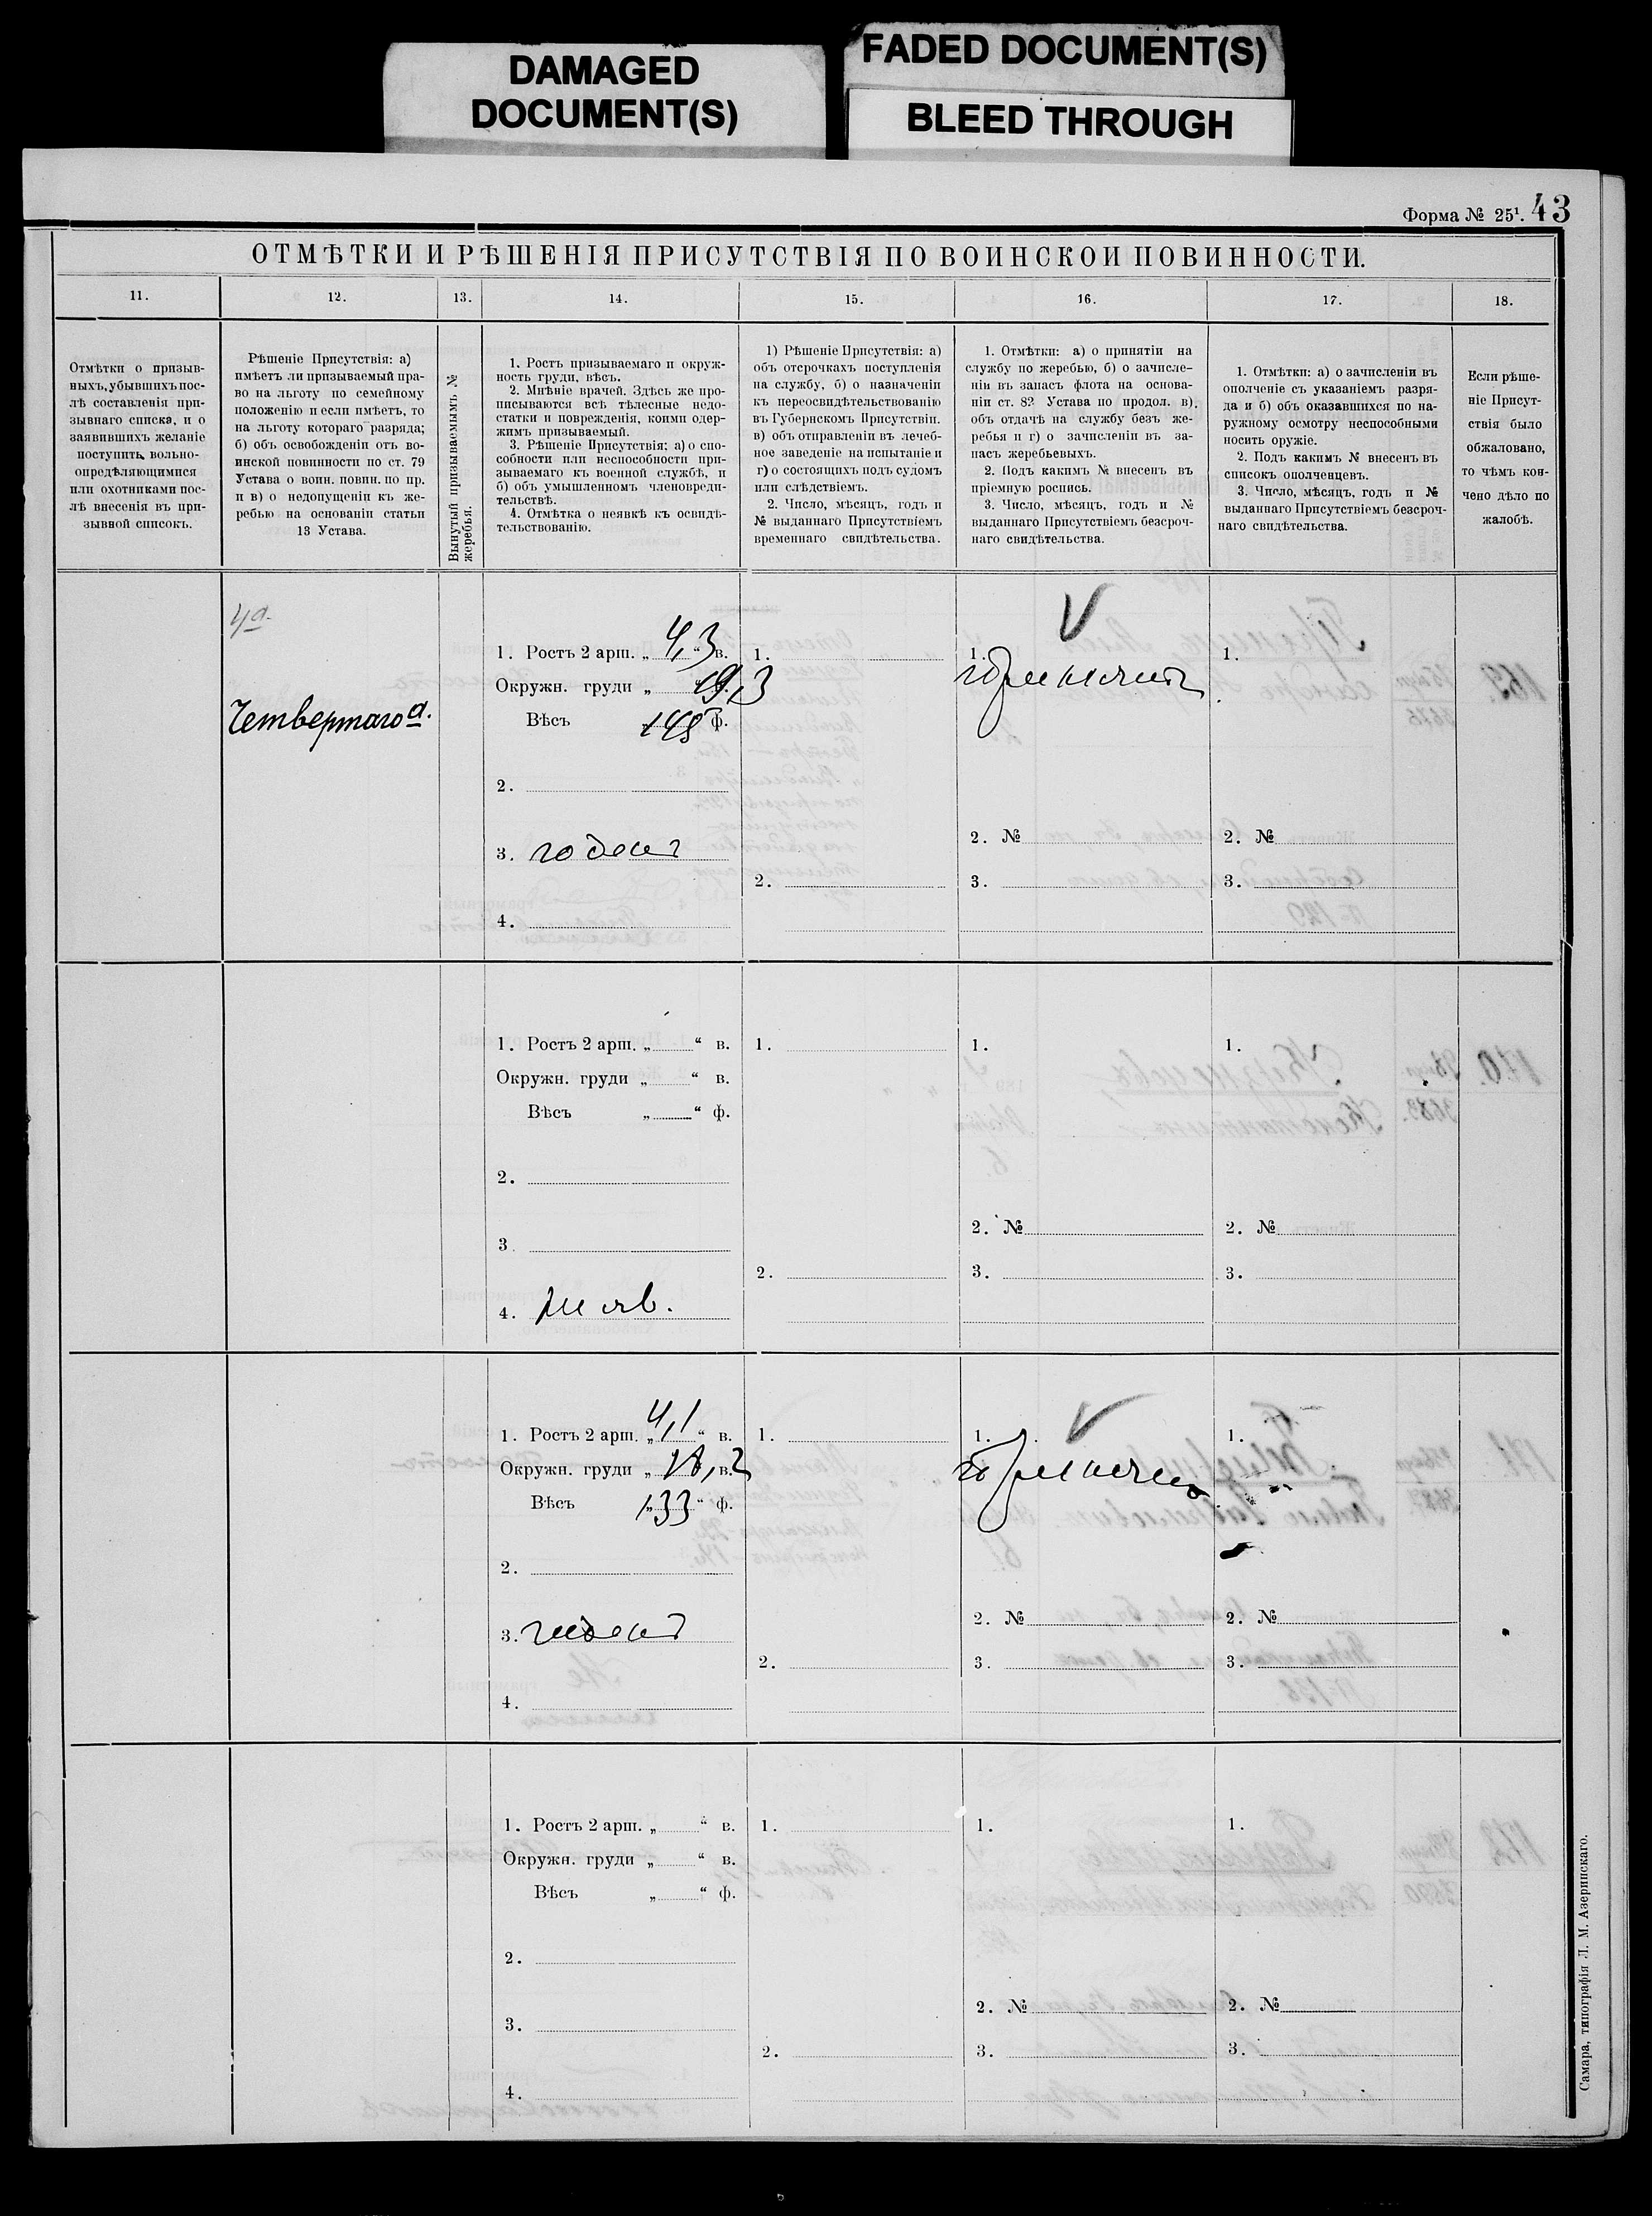 DAMAGED
DOCUMENT(S)
FADED DOCUMENT(S)
BLEED THROUGH
Форма № 25¹. 43
ОТМѢТКИ И РѢШЕНІЯ ПРИСУТСТВІЯ ПО ВОИНСКОЙ ПОВИННОСТИ.
11.
12.
13.
14.
15.
16.
17.
18.
Отмѣтки о призыв-
ныхъ, убывшихъ пос-
лѣ составленія при-
зывнаго списка, и о
заявившихъ желаніе
поступить вольно-
опредѣляющимися
или охотниками пос-
лѣ внесенія въ при-
зывной списокъ.
Рѣшеніе Присутствія: а)
имѣетъ ли призываемый пра-
во на льготу по семейному
положенію и если имѣетъ, то
на льготу котораго разряда;
б) объ освобожденіи отъ во-
инской повинности по ст. 79
Устава о воин. повин. по пр.
и в) о недопущеніи къ же-
ребью на основаніи статьи
13 Устава.
Вынутый призываемымъ №
жеребья.
1. Ростъ призываемаго и окруж-
ность груди, вѣсъ.
2. Мнѣніе врачей. Здѣсь же про-
писываются всѣ тѣлесные недо-
статки и поврежденія, коими одер-
жимъ призываемый.
3. Рѣшеніе Присутствія: а) о спо-
собности или неспособности при-
зываемаго къ военной службѣ, и
б) объ умышленномъ членовреди-
тельствѣ.
4. Отмѣтка о неявкѣ къ освидѣ-
тельствованію.
1) Рѣшеніе Присутствія: а)
объ отсрочкахъ поступленія
на службу, б) о назначеніи
къ переосвидѣтельствованію
въ Губернскомъ Присутствіи.
в) объ отправленіи въ лечеб-
ное заведеніе на испытаніе и
г) о состоящихъ подъ судомъ
или слѣдствіемъ.
2. Число, мѣсяцъ, годъ и
№ выданнаго Присутствіемъ
временнаго свидѣтельства.
1. Отмѣтки: а) о принятіи на
службу по жеребью, б) о зачисле-
ніи въ запасъ флота на основа-
ніи ст. 82 Устава по продол. в).
объ отдачѣ на службу безъ же-
ребья и г) о зачисленіи въ за-
пасъ жеребьевыхъ.
2. Подъ какимъ № внесенъ въ
пріемную роспись.
3. Число, мѣсяцъ, годъ и №
выданнаго Присутствіемъ безсроч-
наго свидѣтельства.
1. Отмѣтки: а) о зачисленіи въ
ополченіе съ указаніемъ разря-
да и б) объ оказавшихся по на-
ружному осмотру неспособными
носить оружіе.
2. Подъ какимъ № внесенъ въ
списокъ ополченцевъ.
3. Число, мѣсяцъ, годъ и №
выданнаго Присутствіемъ безсроч-
наго свидѣтельства.
Если рѣше-
ніе Присут-
ствія было
обжаловано,
то чѣмъ кон-
чено дѣло по
жалобѣ.
4а.
Четвертаго а.
1. Ростъ 2 арш. „ 4,3 “ в.
Окружн. груди „ 19,3 в.
Вѣсъ 148 ф.
2.
3. годенъ
4.
1.
2.
1.
2. №
3.
1.
2. №
3.
1. Ростъ 2 арш. „ “ в.
Окружн. груди „ “ в.
Вѣсъ „ “ ф.
2.
3
4. не яв.
1.
2.
1.
2. №
3.
1.
2. №
3.
1. Ростъ 2 арш. „ 4,1 “ в.
Окружн. груди „ 18,2 в.
Вѣсъ „ 133 “ ф.
2.
3. годенъ
4.
1.
2.
1.
2. №
3.
1.
2. №
3.
1. Ростъ 2 арш. „ “ в.
Окружн. груди „ “ в.
Вѣсъ „ “ ф.
2.
3.
4.
1.
2.
1.
2. №
3.
1.
2. №
3.
Самара, типографія Л. М. Азеринскаго.